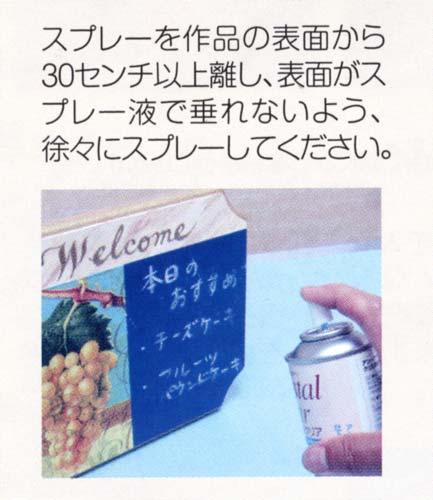 スプレーを作品の表面から
30センチ以上離し、表面がス
プレー液で垂れないよう、
徐々にスプレーしてください。
Welcome
本日の
おすすめ
・チーズケーキ
・フルーツ
パウンドケーキ
tal
r